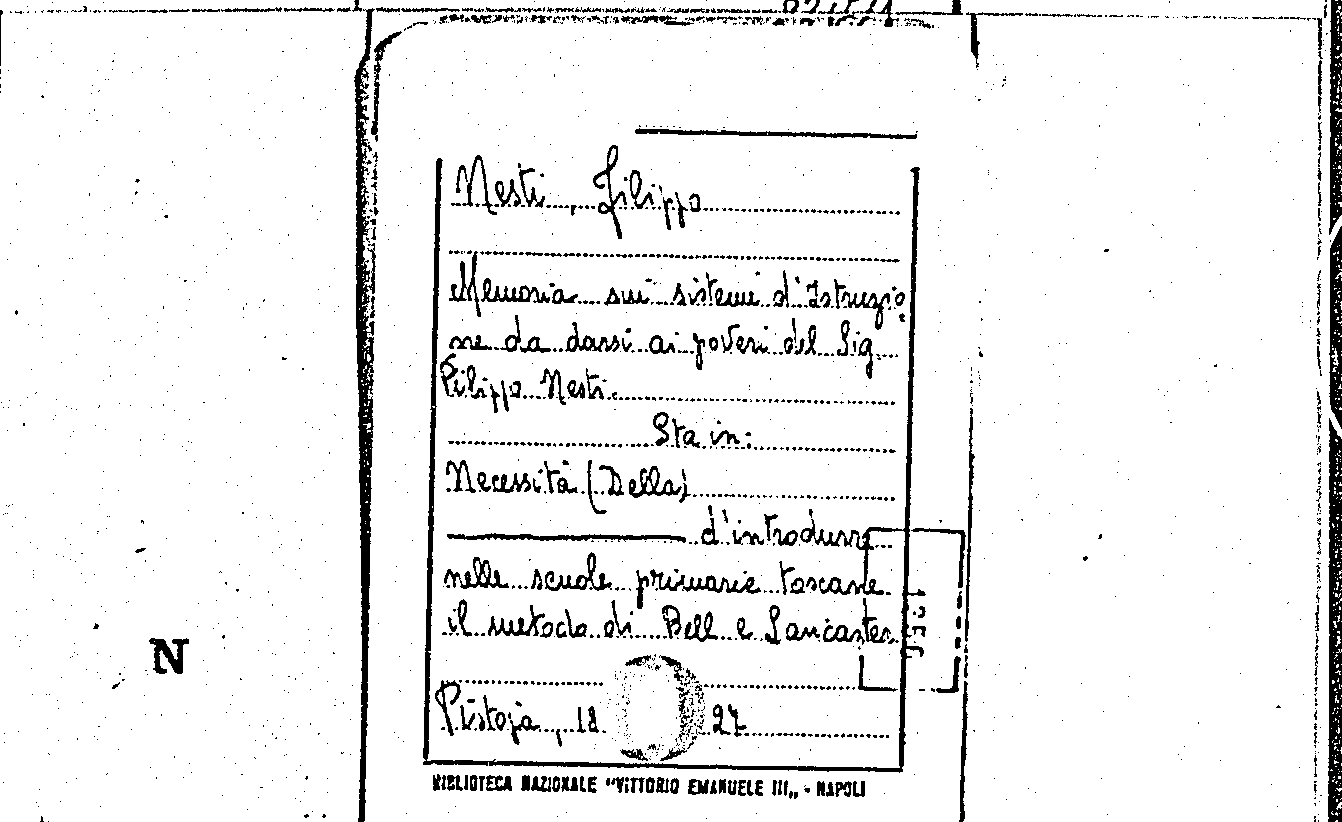 Nesti, Filippo
Memoria sui sistemi d'Istruzio
ne da darsi ai poveri del Sig
Filippo Nesti.
Sta in:
Necessità (Della)
d'introdurre
nelle scuole primarie toscane
il metodo di Bell e Lancaster
Pistoja, 1827
BIBLIOTECA NAZIONALE "VITTORIO EMANUELE III„ - NAPOLI
N